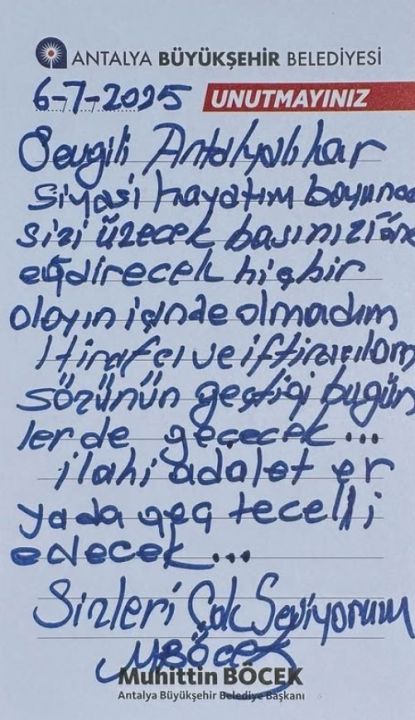 ANTALYA BÜYÜKŞEHİR BELEDİYESİ
6-7-2025 UNUTMAYINIZ
Sevgili Antalyalılar
Siyasi hayatım boyunca
sizi üzecek başınızı öne
eğdirecek hiçbir
olayın içinde olmadım
İtirafçı ve iftiracıların
sözünün geçtiği bugün
lerde geçecek...
ilahi adalet er
yada geç tecelli
edecek...
Sizleri Çok Seviyorum
MBÖCEK
Muhittin BÖCEK
Antalya Büyükşehir Belediye Başkanı